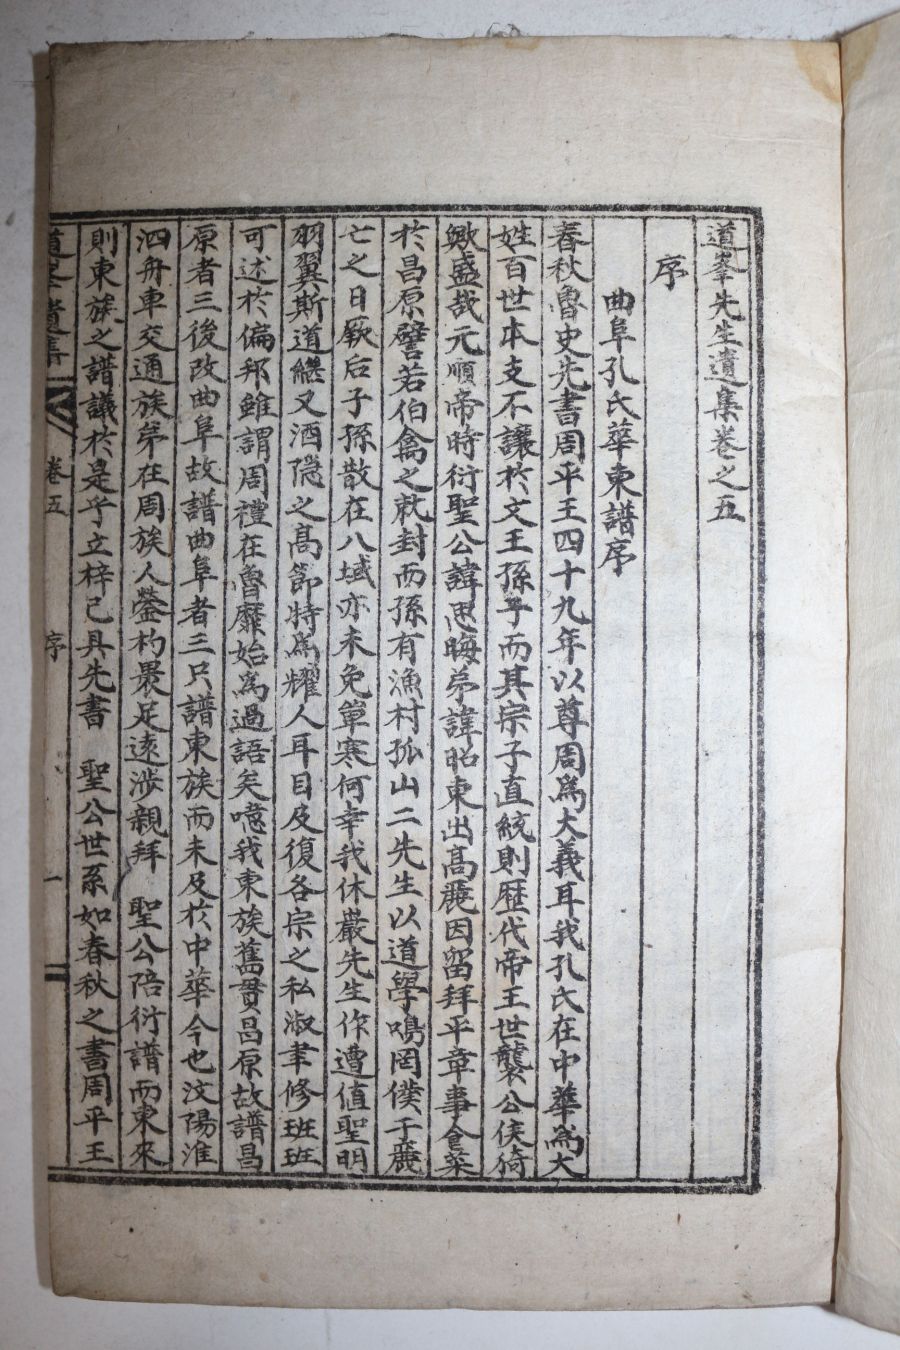 道峯先生遺集卷之五
序
曲阜孔氏華東譜序
春秋魯史先書周平王四十九年以尊周爲大義耳我孔氏在中華爲大
姓百世本支不讓於文王孫子而其宗子直統則歷代帝王世襲公侯猗
歟盛哉元順帝時衍聖公諱思晦弟諱昭東出高麗因留拜平章事食菜
於昌原譬若伯禽之款封而孫有漁村孤山二先生以道學鳴罔僕于麗
亡之日厥后子孫散在八域亦未免單寒何幸我休巖先生作遭値聖明
羽翼斯道繼又酒隱之高節特爲耀人耳目及復各宗之私淑聿修班班
可述於偏邦雖謂周禮在魯靡始爲過語矣噫我東族舊貫昌原故譜昌
原者三後改曲阜故譜曲阜者三只譜東族而未及於中華今也汶陽淮
泗舟車交通族弟在周族人瑩杓褁足遠涉親拜 聖公陪衍譜而東來
則東族之譜議於是乎立梓已具先書 聖公世系如春秋之書周平王
道峯遺集
卷五
序
一